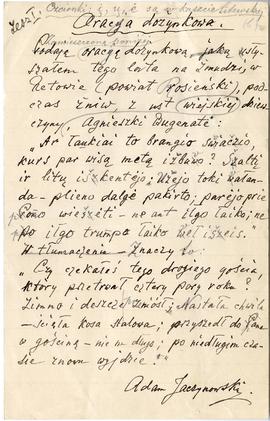 Oracya dożynkowa.
Podaję oracyę dożynkową, jaką usły-
szałem tego lata na Żmudzi, w
Retowie (powiat Rosieński), pod-
czas żniw z ust wiejskiej dziew-
czyny, Agnieszki
„Ar łaukiai to brangio swaczio,
kurs par wisą metą izbuwo? Szalti
ir litų iszkentėjo; Użejo toki
plieno dalgė pakirto; parėjo pri
pono wieszėti – ne ant ilgo taiko; ne-
po ilgo trumpo taiko wėl iszeis."
W tłumaczeniu znaczy to:
„Czy czekałeś tego drogiego gościa,
który przetrwał cztery pory roku?
Zimno i deszcze zniósł; Nastała chwila
– ścięła kosa stalowa; przyszedł do Pana
w gościnę – nie na długo; po niedługim cza-
sie znowu wyjdzie".
Adam Jaczynowski.